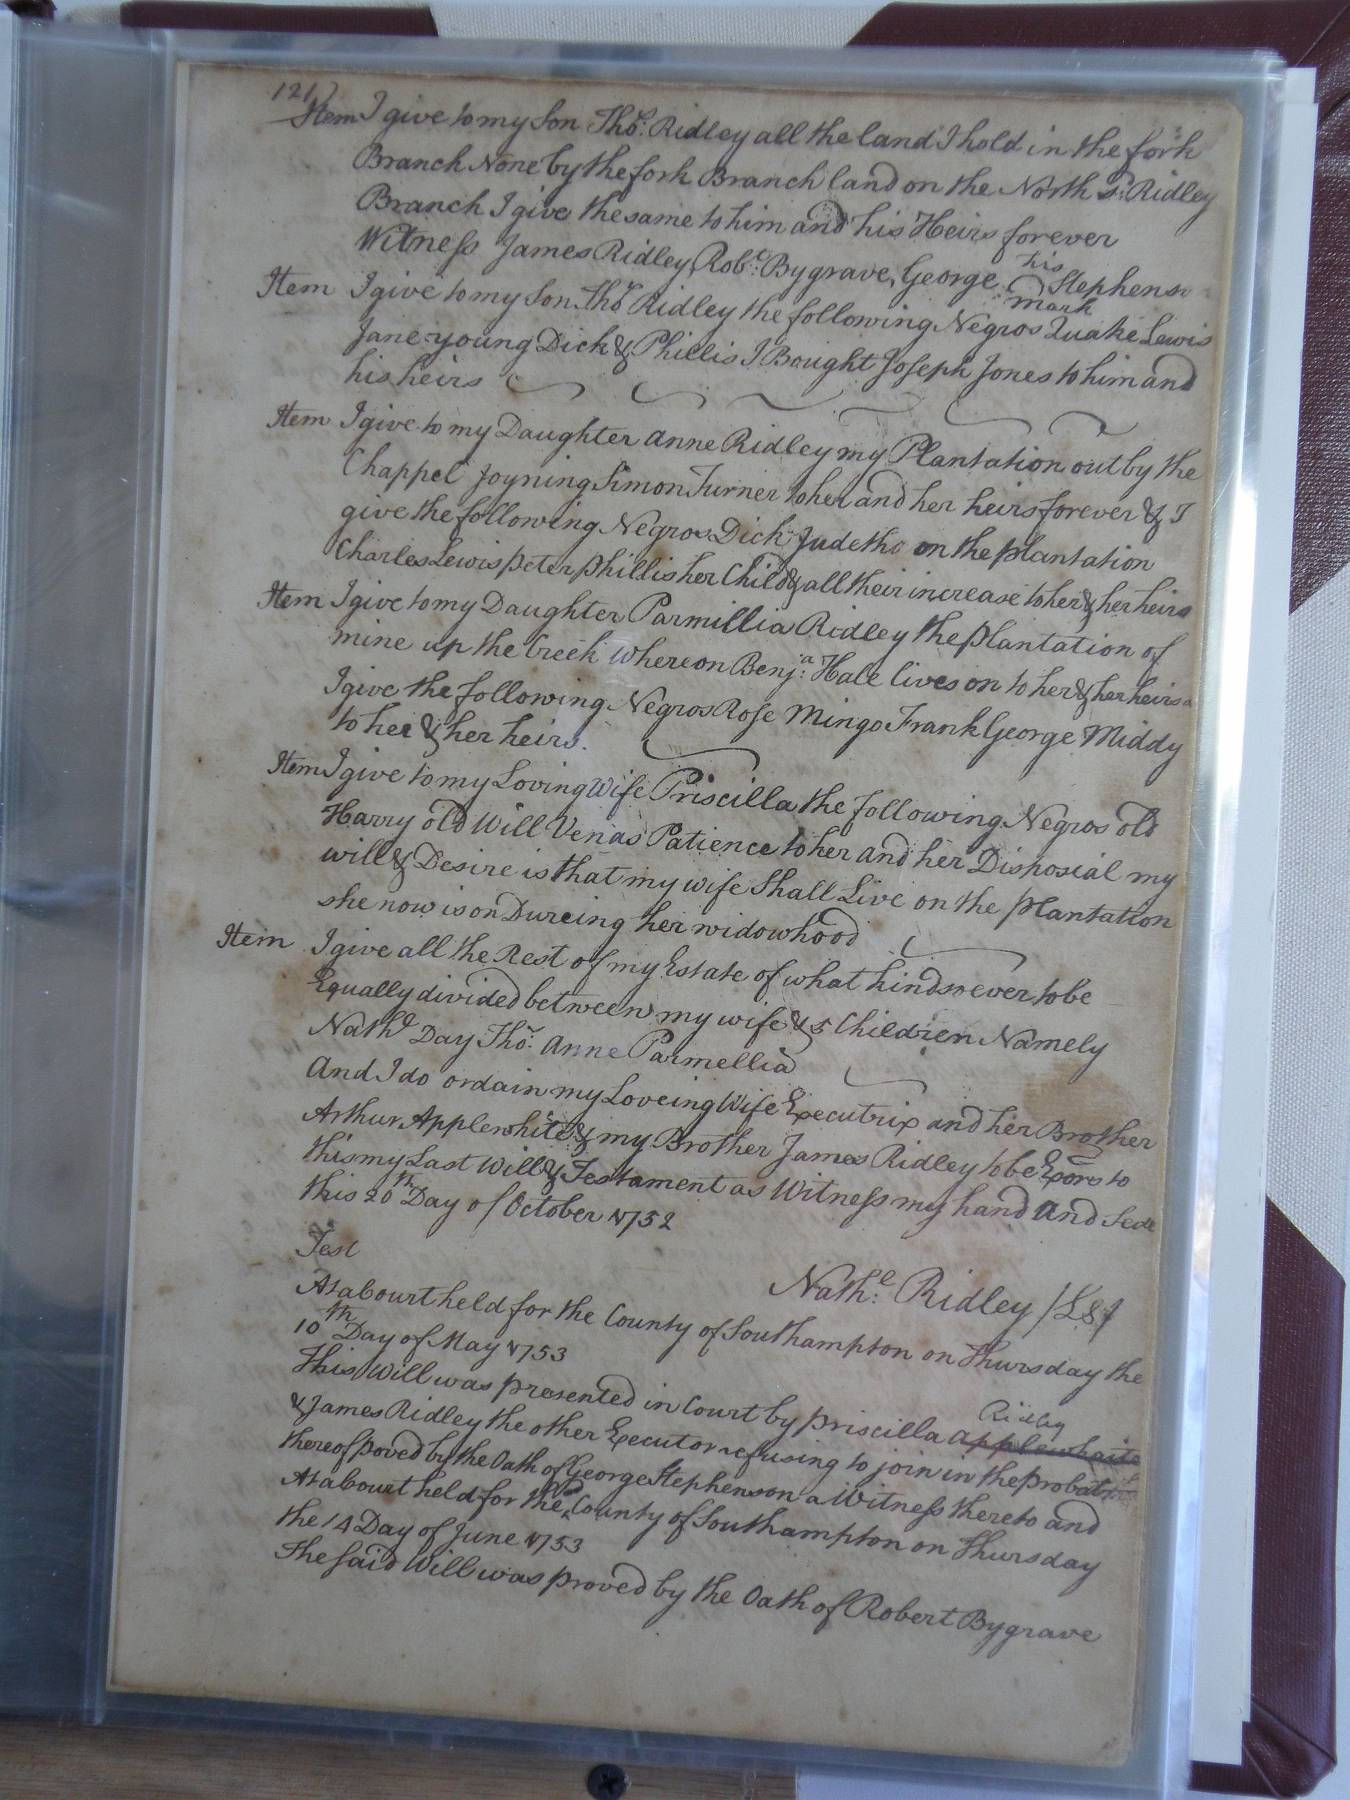 121
Item I give to my Son Tho.s Ridley all the land I hold in the fork
Branch None by the fork Branch land on the North s.d Ridley
Branch I give the same to him and his Heirs forever
Witness James Ridley, Rob.t Bygrave, George his mark Stephenson
Item I give to my Son Tho.s Ridley the following Negros Quake Lewis
Jane young Dick & Phillis I Bought Joseph Jones to him and
his heirs
Item I give to my Daughter Anne Ridley my Plantation out by the
Chappel Joyning Simon Turner to her and her heirs forever & I
give the following Negros Dick Jude tho on the plantation
Charles Lewis peter phillis her Child & all their increase to her & her heirs
Item I give to my Daughter Parmillia Ridley the plantation of
mine up the Creek whereon Benj.a Hale lives on to her & her heirs
I give the following Negros Rose Mingo Frank George Middy
to her & her heirs.
Item I give to my Loving Wife Priscilla the following Negros old
Harry old Will Venas Patience to her and her Disposial my
will & Desire is that my wife Shall Live on the plantation
she now is on Dureing her widowhood
Item I give all the Rest of my Estate of what kindsoever to be
Equally divided between my wife & 5 Children Namely
Nath.l Day Tho.s Anne Parmellia
And I do ordain my Loveing Wife Executrix and her Brother
Arthur Applewhite & my Brother James Ridley to be Exors to
this my Last Will & Testament as Witness my hand and Sele
this 20th Day of October 1752
Test
Nath.l Ridley /LS/
At a Court held for the County of Southampton on Thursday the
10th Day of May 1753
This Will was presented in Court by Priscilla Applewhaite Ridley
& James Ridley the other Executor refusing to join in the probat
thereof proved by the Oath of George Stephenson a Witness thereto and
At a Court held for the s.d County of Southampton on Thursday
the 14 Day of June 1753
The said Will was proved by the Oath of Robert Bygrave